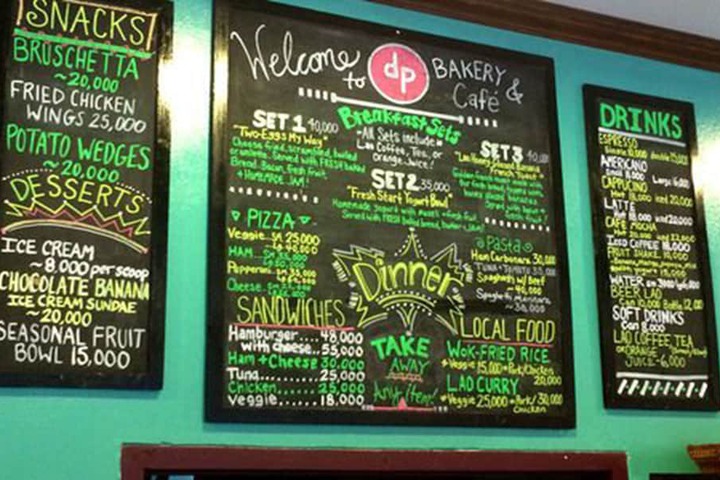 SNACKS
BRUSCHETTA
~20,000
FRIED CHICKEN
WINGS 25,000
POTATO WEDGES
~20,000
DESSERTS
ICE CREAM
~8,000 per scoop
CHOCOLATE BANANA
ICE CREAM SUNDAE
~20,000
SEASONAL FRUIT
BOWL 15,000
Welcome to dp BAKERY & Café
Breakfast Sets
*All Sets include*
Lao Coffee, Tea, or
orange Juice!
SET 1 40,000
"Two Eggs My Way"
Cheese fried, scrambled, boiled
Served with FRESH baked
Bread, Bacon, fresh fruit,
+ HOMEMADE JAM!
SET 2 35,000
"Fresh Start Yogurt Bowl"
Homemade yogurt with muesli + fresh fruit.
Served with FRESH baked bread, butter + jam!
SET 3 40,000
French Toast
PIZZA
Veggie 25,000
HAM
Pepperoni
Cheese
SANDWICHES
Hamburger....48,000
with cheese..55,000
Ham + Cheese 30,000
Tuna..........25,000
Chicken......25,000
Veggie.......18,000
Dinner
TAKE
AWAY
Any Item!
Pasta
Ham Carbonara 30,000
TUNA + TOMATO 35,000
Spaghetti w/ Beef
Spaghetti Marinara
LOCAL FOOD
WOK-FRIED RICE
*Veggie 15,000 *Pork/Chicken
20,000
LAO CURRY
*Veggie 25,000 *Pork/ 30,000
Chicken
DRINKS
ESPRESSO
AMERICANO
CAPPUCCINO
Hot 18,000 iced 20,000
LATTE
Hot 18,000 iced 20,000
CAFE MOCHA
ICED COFFEE 18,000
FRUIT SHAKE 10,000
WATER
BEER LAO
Can 10,000 Bottle 12,000
SOFT DRINKS
Can 8,000
LAO COFFEE, TEA
or ORANGE
JUICE ~6,000